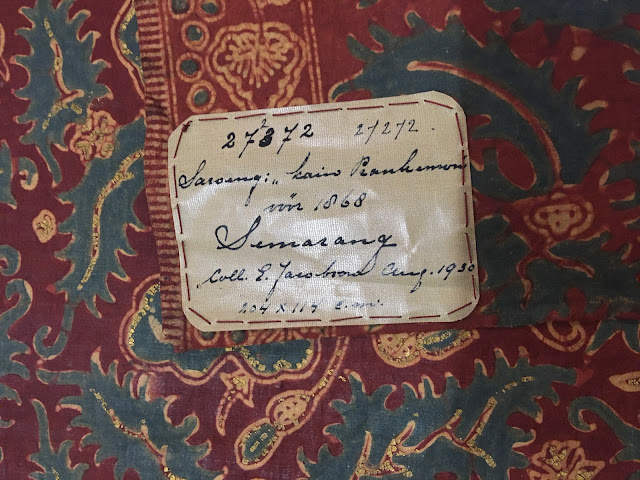 27372 2/2/2.
Saroeng: „kain Prankemon"
vór 1868
Semarang
Coll. E. Jacobson Aug. 1930
204 x 117 c.m.